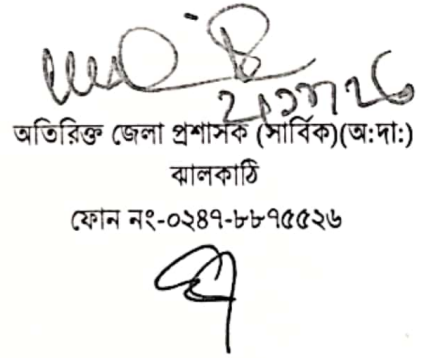 অতিরিক্ত জেলা প্রশাসক (সার্বিক)(অ:দা:)
ঝালকাঠি
ফোন নং-০২৪৭-৮৮৭৫৫২৬